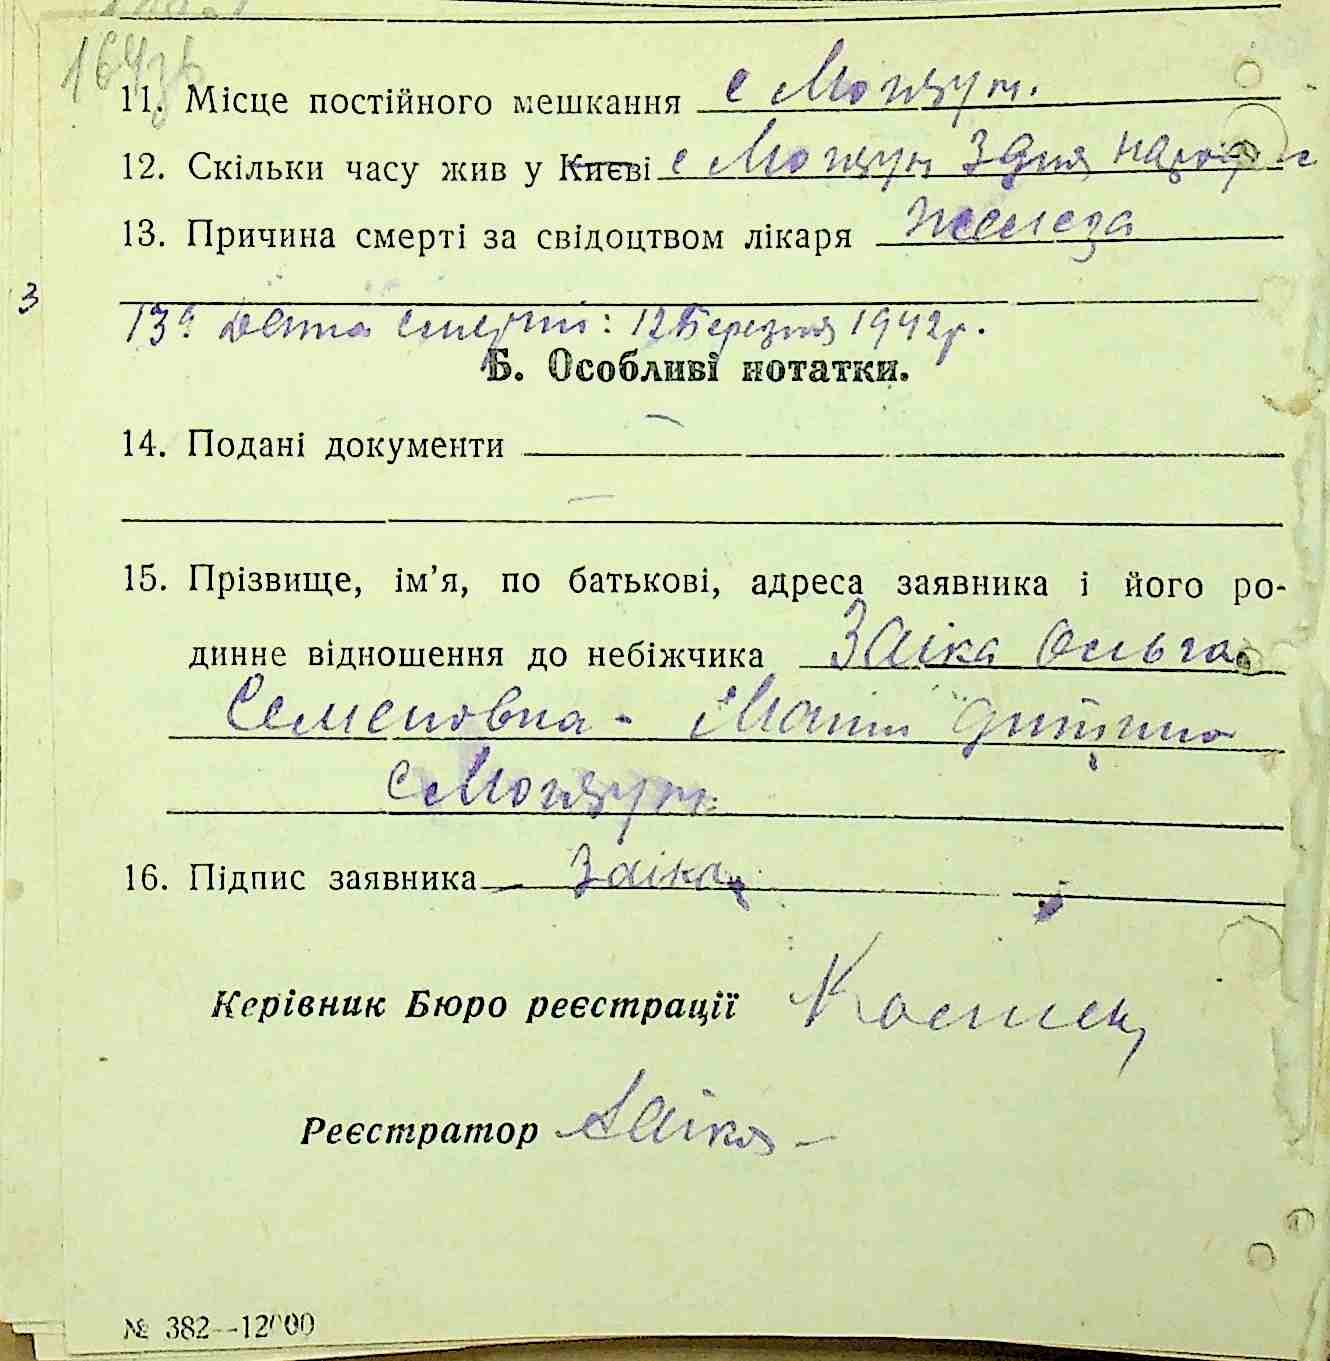 164зв
11. Місце постійного мешкання с Мощун.
12. Скільки часу жив у Києві с Мощун з дня народж
13. Причина смерті за свідоцтвом лікаря
3
13а Дата смерти: 12 Березня 1942 р.
Б. Особливі нотатки.
14. Подані документи —
—
15. Прізвище, ім’я, по батькові, адреса заявника і його ро-
динне відношення до небіжчика Заіка Ольга
Семеновна - Мати
с Мощун
16. Підпис заявника Заіка
Керівник Бюро реєстрації
Реєстратор Заіка
№ 382—12000